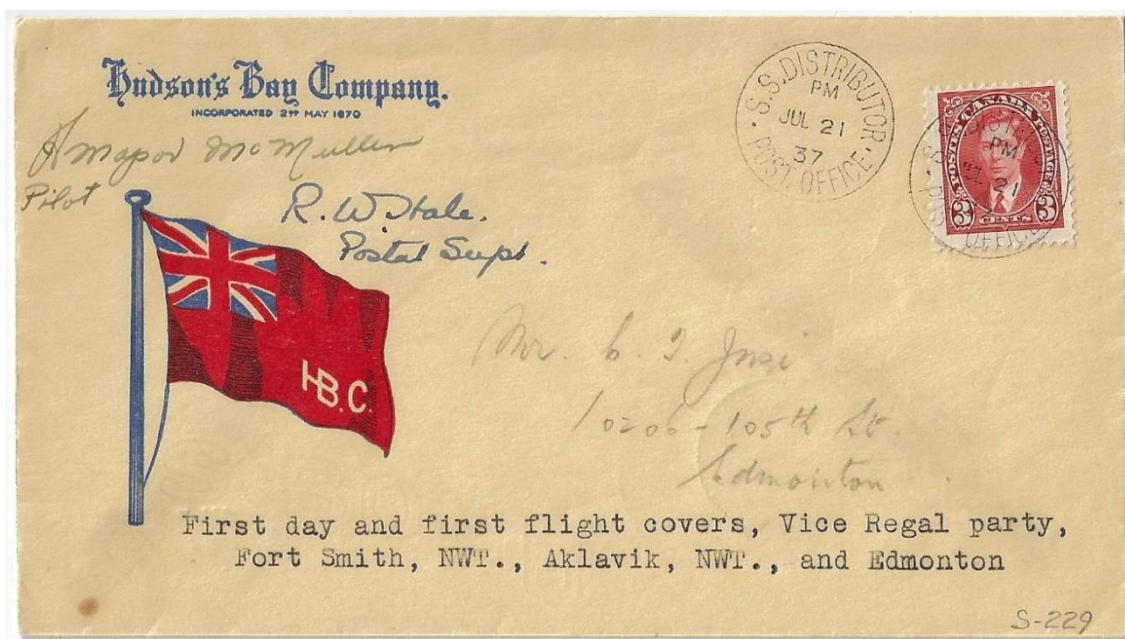 Hudson's Bay Company.
INCORPORATED 2ND MAY 1670
McMullen
Pilot
R. W. Hale.
Postal Supt.
S.S. DISTRIBUTOR
PM
JUL 21
37
POST OFFICE
POSTES CANADA POSTAGE
3 CENTS 3
PM
JUL 21
OFFICE
HB.C.
Mr.
10206-105th St.
Edmonton
First day and first flight covers, Vice Regal party,
Fort Smith, NWT., Aklavik, NWT., and Edmonton
S-229